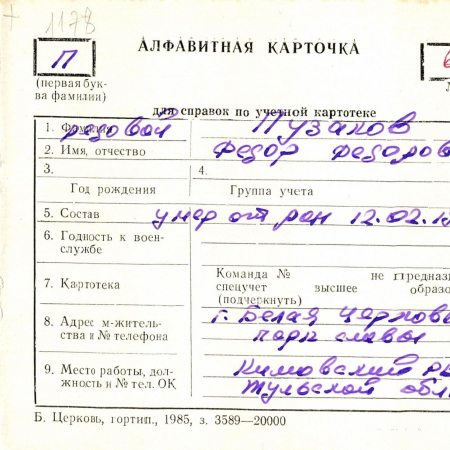 1178
П
АЛФАВИТНАЯ КАРТОЧКА
(первая бук-
ва фамилии)
для справок по учетной картотеке
1. Фамилия Пузаков
рядовой
2. Имя, отчество Федор Федоров
3. 4.
Год рождения Группа учета
5. Состав умер от ран 12.02.19
6. Годность к воен-
службе
7. Картотека
Команда № не предназ
спецучет высшее образо
(подчеркнуть)
8. Адрес м-житель-
ства и № телефона
г. Белая Церковь
парк славы
9. Место работы, дол-
жность и № тел. ОК
Кимовский
Тульской обл
Б. Церковь, гортип., 1985, з. 3589—20000